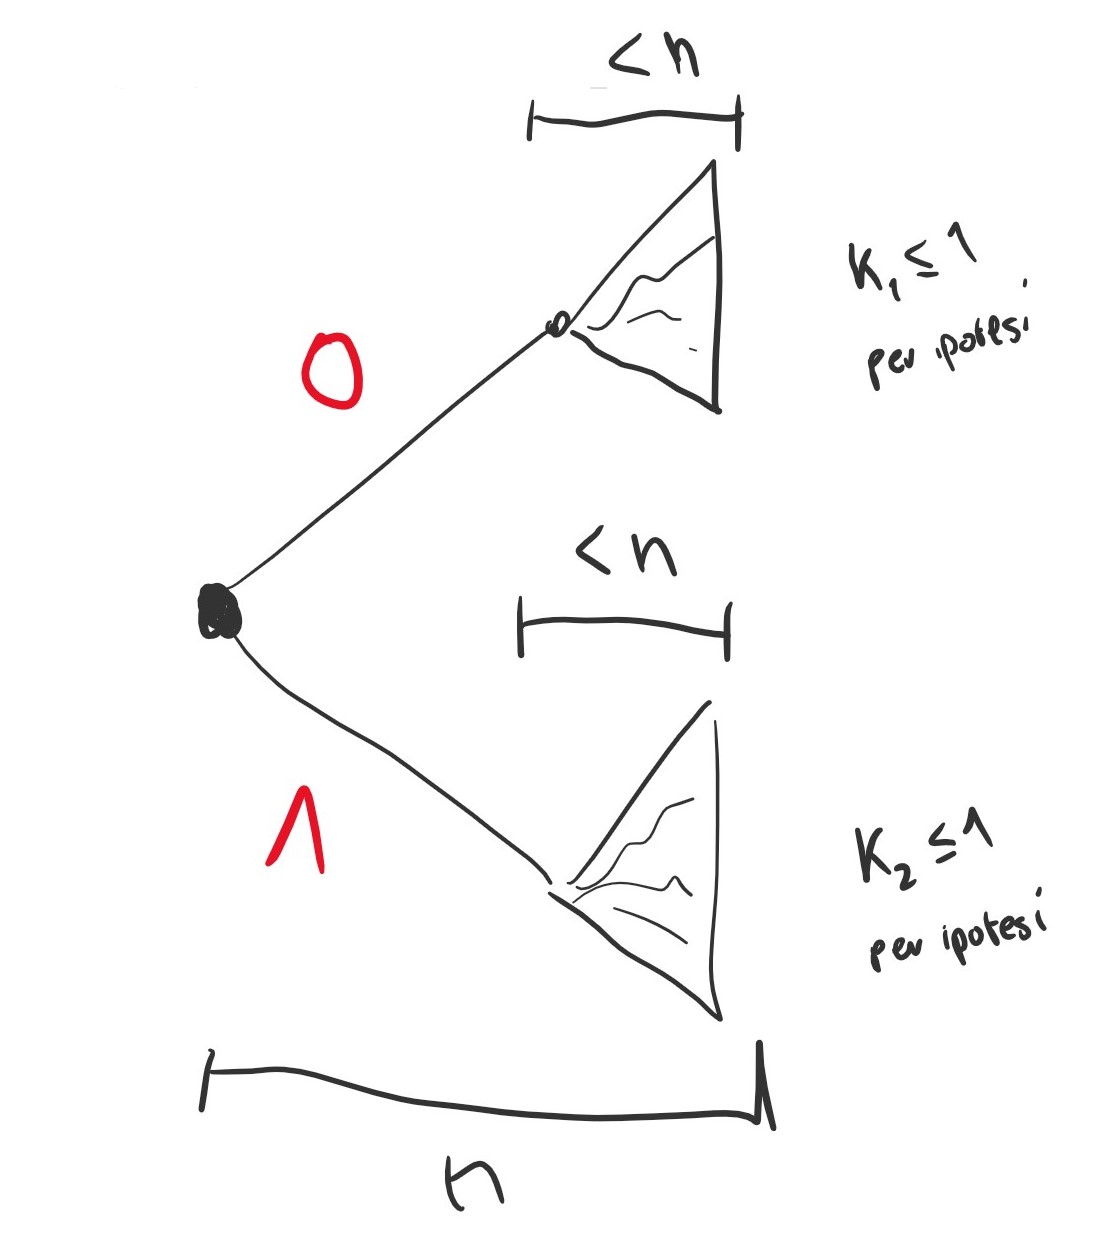 <n
K₁ ≤ 1
per ipotesi
0
<n
1
K₂ ≤ 1
per ipotesi
n